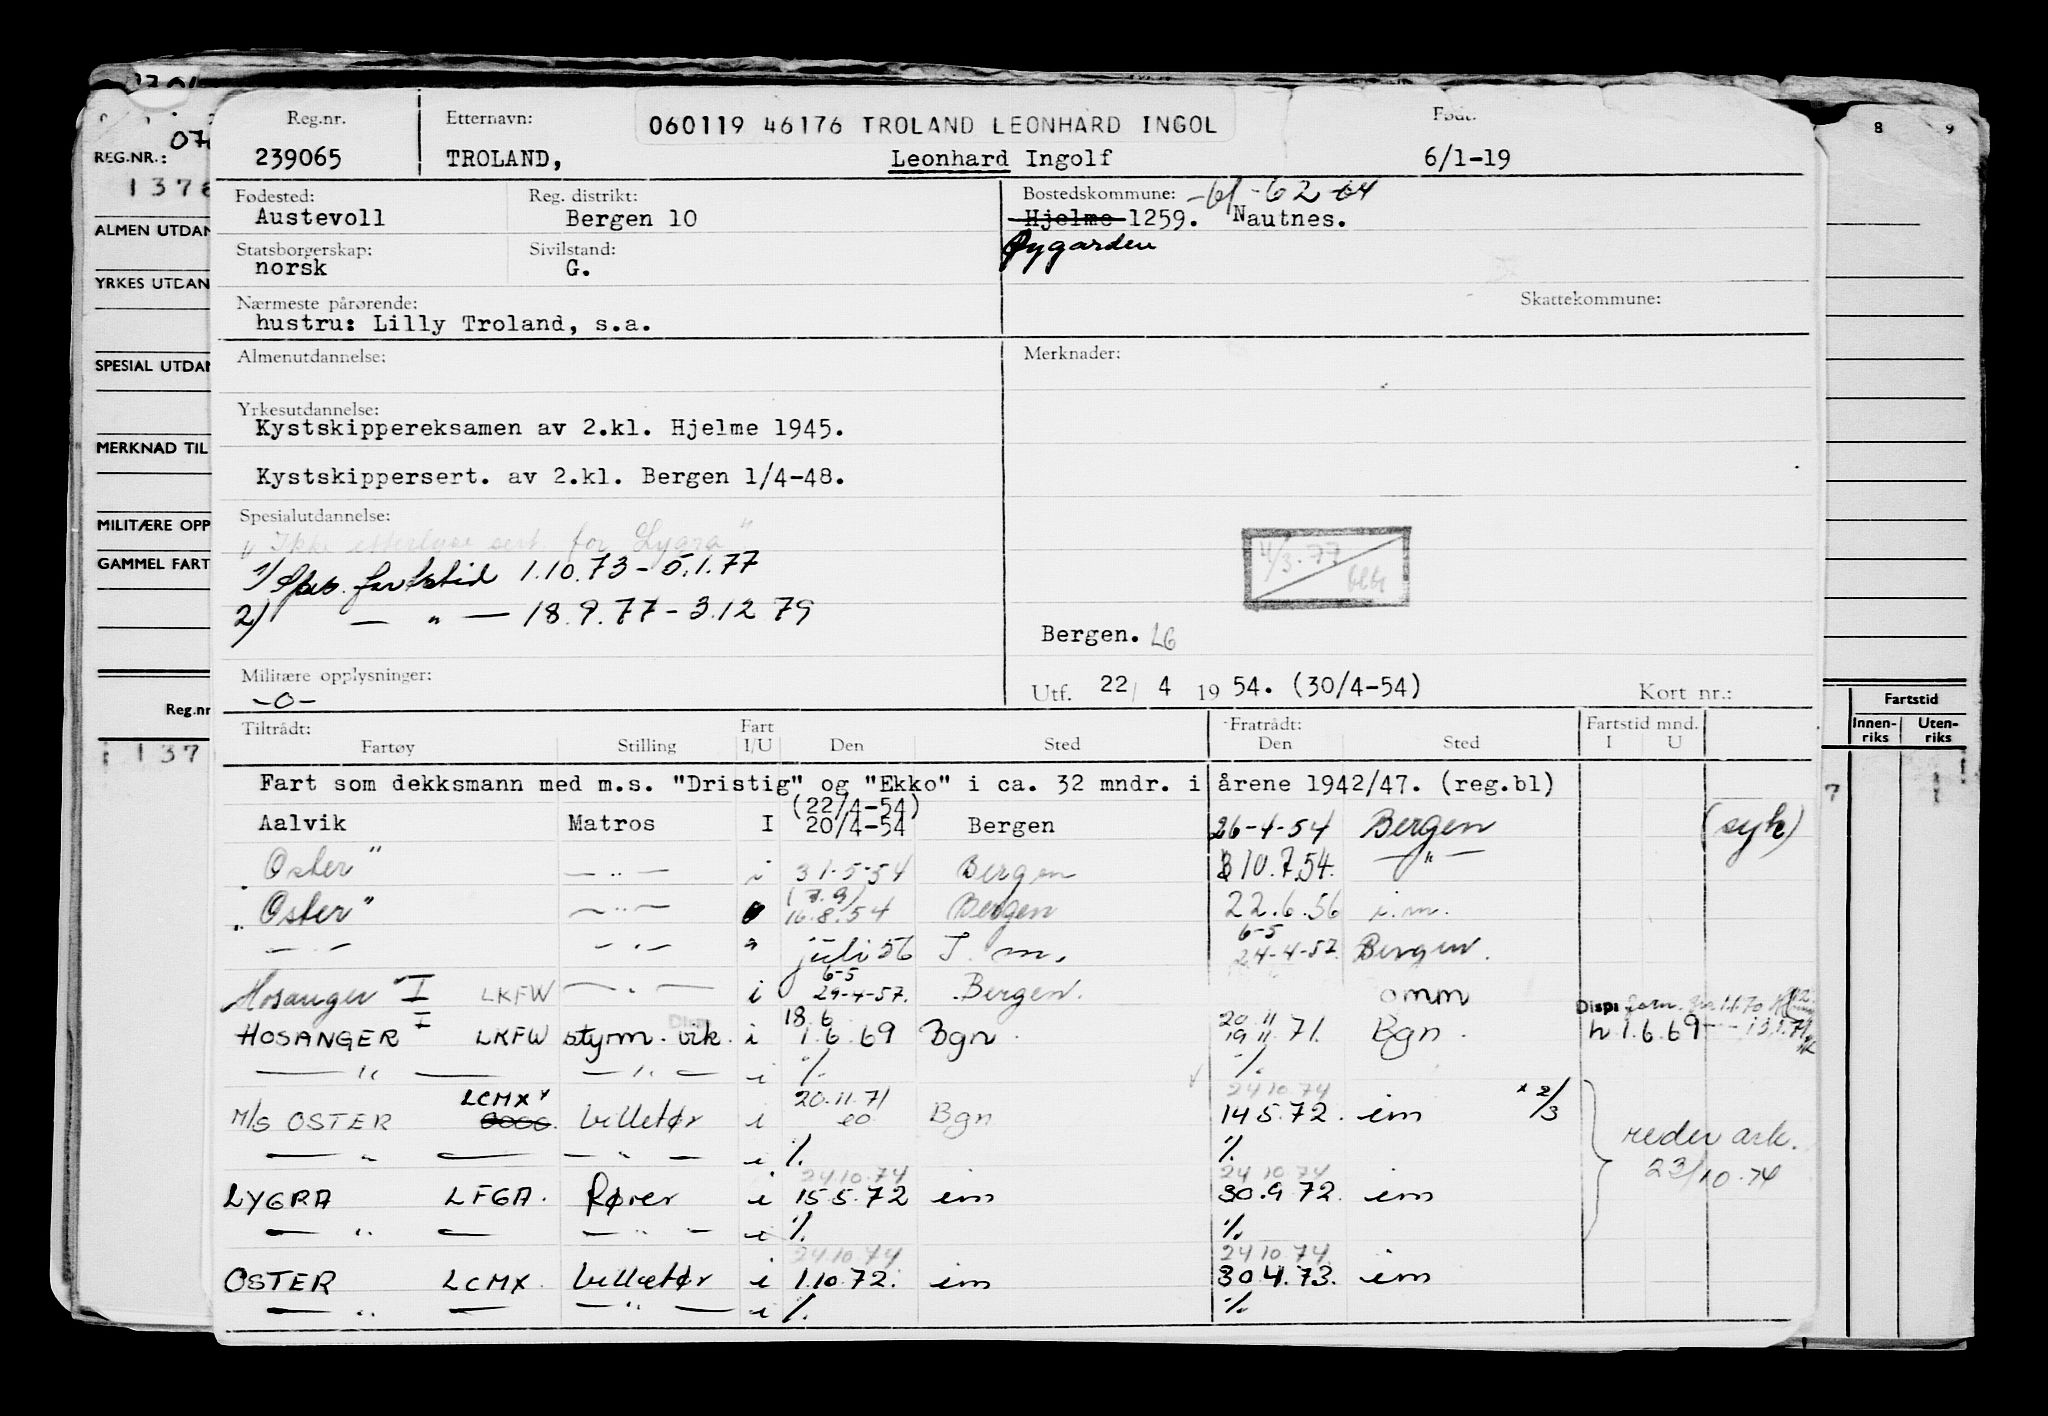 Reg.nr. Etternavn: 060119 46176 TROLAND LEONHARD INGOL Født:
239065 TROLAND, Leonhard Ingolf 6/1-19
Fødested: Reg. distrikt: Bostedskommune: -61 -62 64
Austevoll Bergen 10 Hjelme 1259. Nautnes.
Øygarden
Statsborgerskap: Sivilstand:
norsk G.
Nærmeste pårørende: Skattekommune:
hustru: Lilly Troland, s.a.
Almenutdannelse: Merknader:
Yrkesutdannelse:
Kystskippereksamen av 2.kl. Hjelme 1945.
Kystskippersert. av 2.kl. Bergen 1/4-48.
Spesialutdannelse:
Ikke etterlyse sert. for "Lygra"
1) Spes. fartstid 1.10.73 - 5.1.77
4/3.77
2) — " — 18.9.77 - 3.12 79
Bergen. LG
Militære opplysninger:
-0-
Utf. 22/ 4 19 54. (30/4-54) Kort nr.:
Tiltrådt: Fart Fratrådt: Fartstid mnd.
Fartøy Stilling I/U Den Sted Den Sted I U
Fart som dekksmann med m.s. "Dristig" og "Ekko" i ca. 32 mndr. i årene 1942/47. (reg.bl)
(22/4-54)
Aalvik Matros I 20/4-54 Bergen 26-4-54 Bergen (syk)
"Oster" — " — i 31-5-54 Bergen 10.7.54. — " —
(7.9)
"Oster" — " — 16.8.54 Bergen 22.6.56 i.m.
6-5
— " — — " — " juli 56 I. m. 24-4-57. Bergen.
6-5
Hosanger I LKFW — " — i 29-4-57. Bergen. omm
Disp:
18 6 20 11
HOSANGER I LKFW styrm. vik. i 1.6 69 Bgn. 19 11 71. Bgn. h 1.6.69
— " — — " — i %. %.
LCMX 20.11.71 24 10 74 x 2/3
M/S OSTER billetør i eo Bgn 14 5.72. im
— " — — " — i %. %.
reder ark.
23/10.74
24.10.74 24 10 74
LYGRA LFGA. Rører i 15 5.72 im 30.9.72. im
— " — — " — i %. %.
24.10.74 24 10 74
OSTER LCMX. billetør i 1.10.72. im 30.4.73. im
— " — — " — i %. %.
REG.NR.:
1378
ALMEN UTDAN
YRKES UTDAN
SPESIAL UTDAN
MERKNAD TIL
MILITÆRE OPP
GAMMEL FART
Reg.nr
137
8 9
Fartstid
Innen- Uten-
riks riks
7